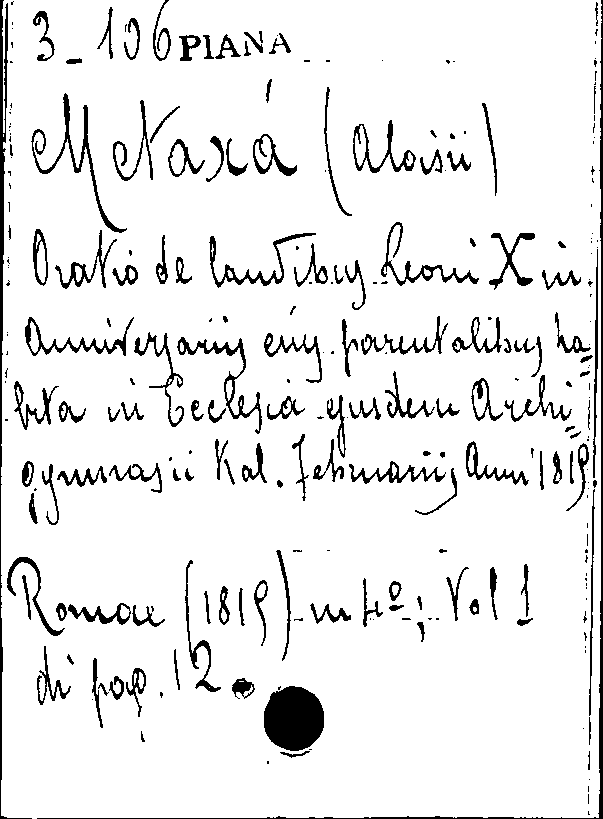 3_106 PIANA
Metaxá (Aloisii)
Oratio de laudibus Leoni X in
Anniversariis eius parentalibus ha=
bita in Ecclesia ejusdem Archi=
gymnasii Kal. Februariis Anni 1819
Romae (1819) in 4º; Vol 1
di pag. 12.